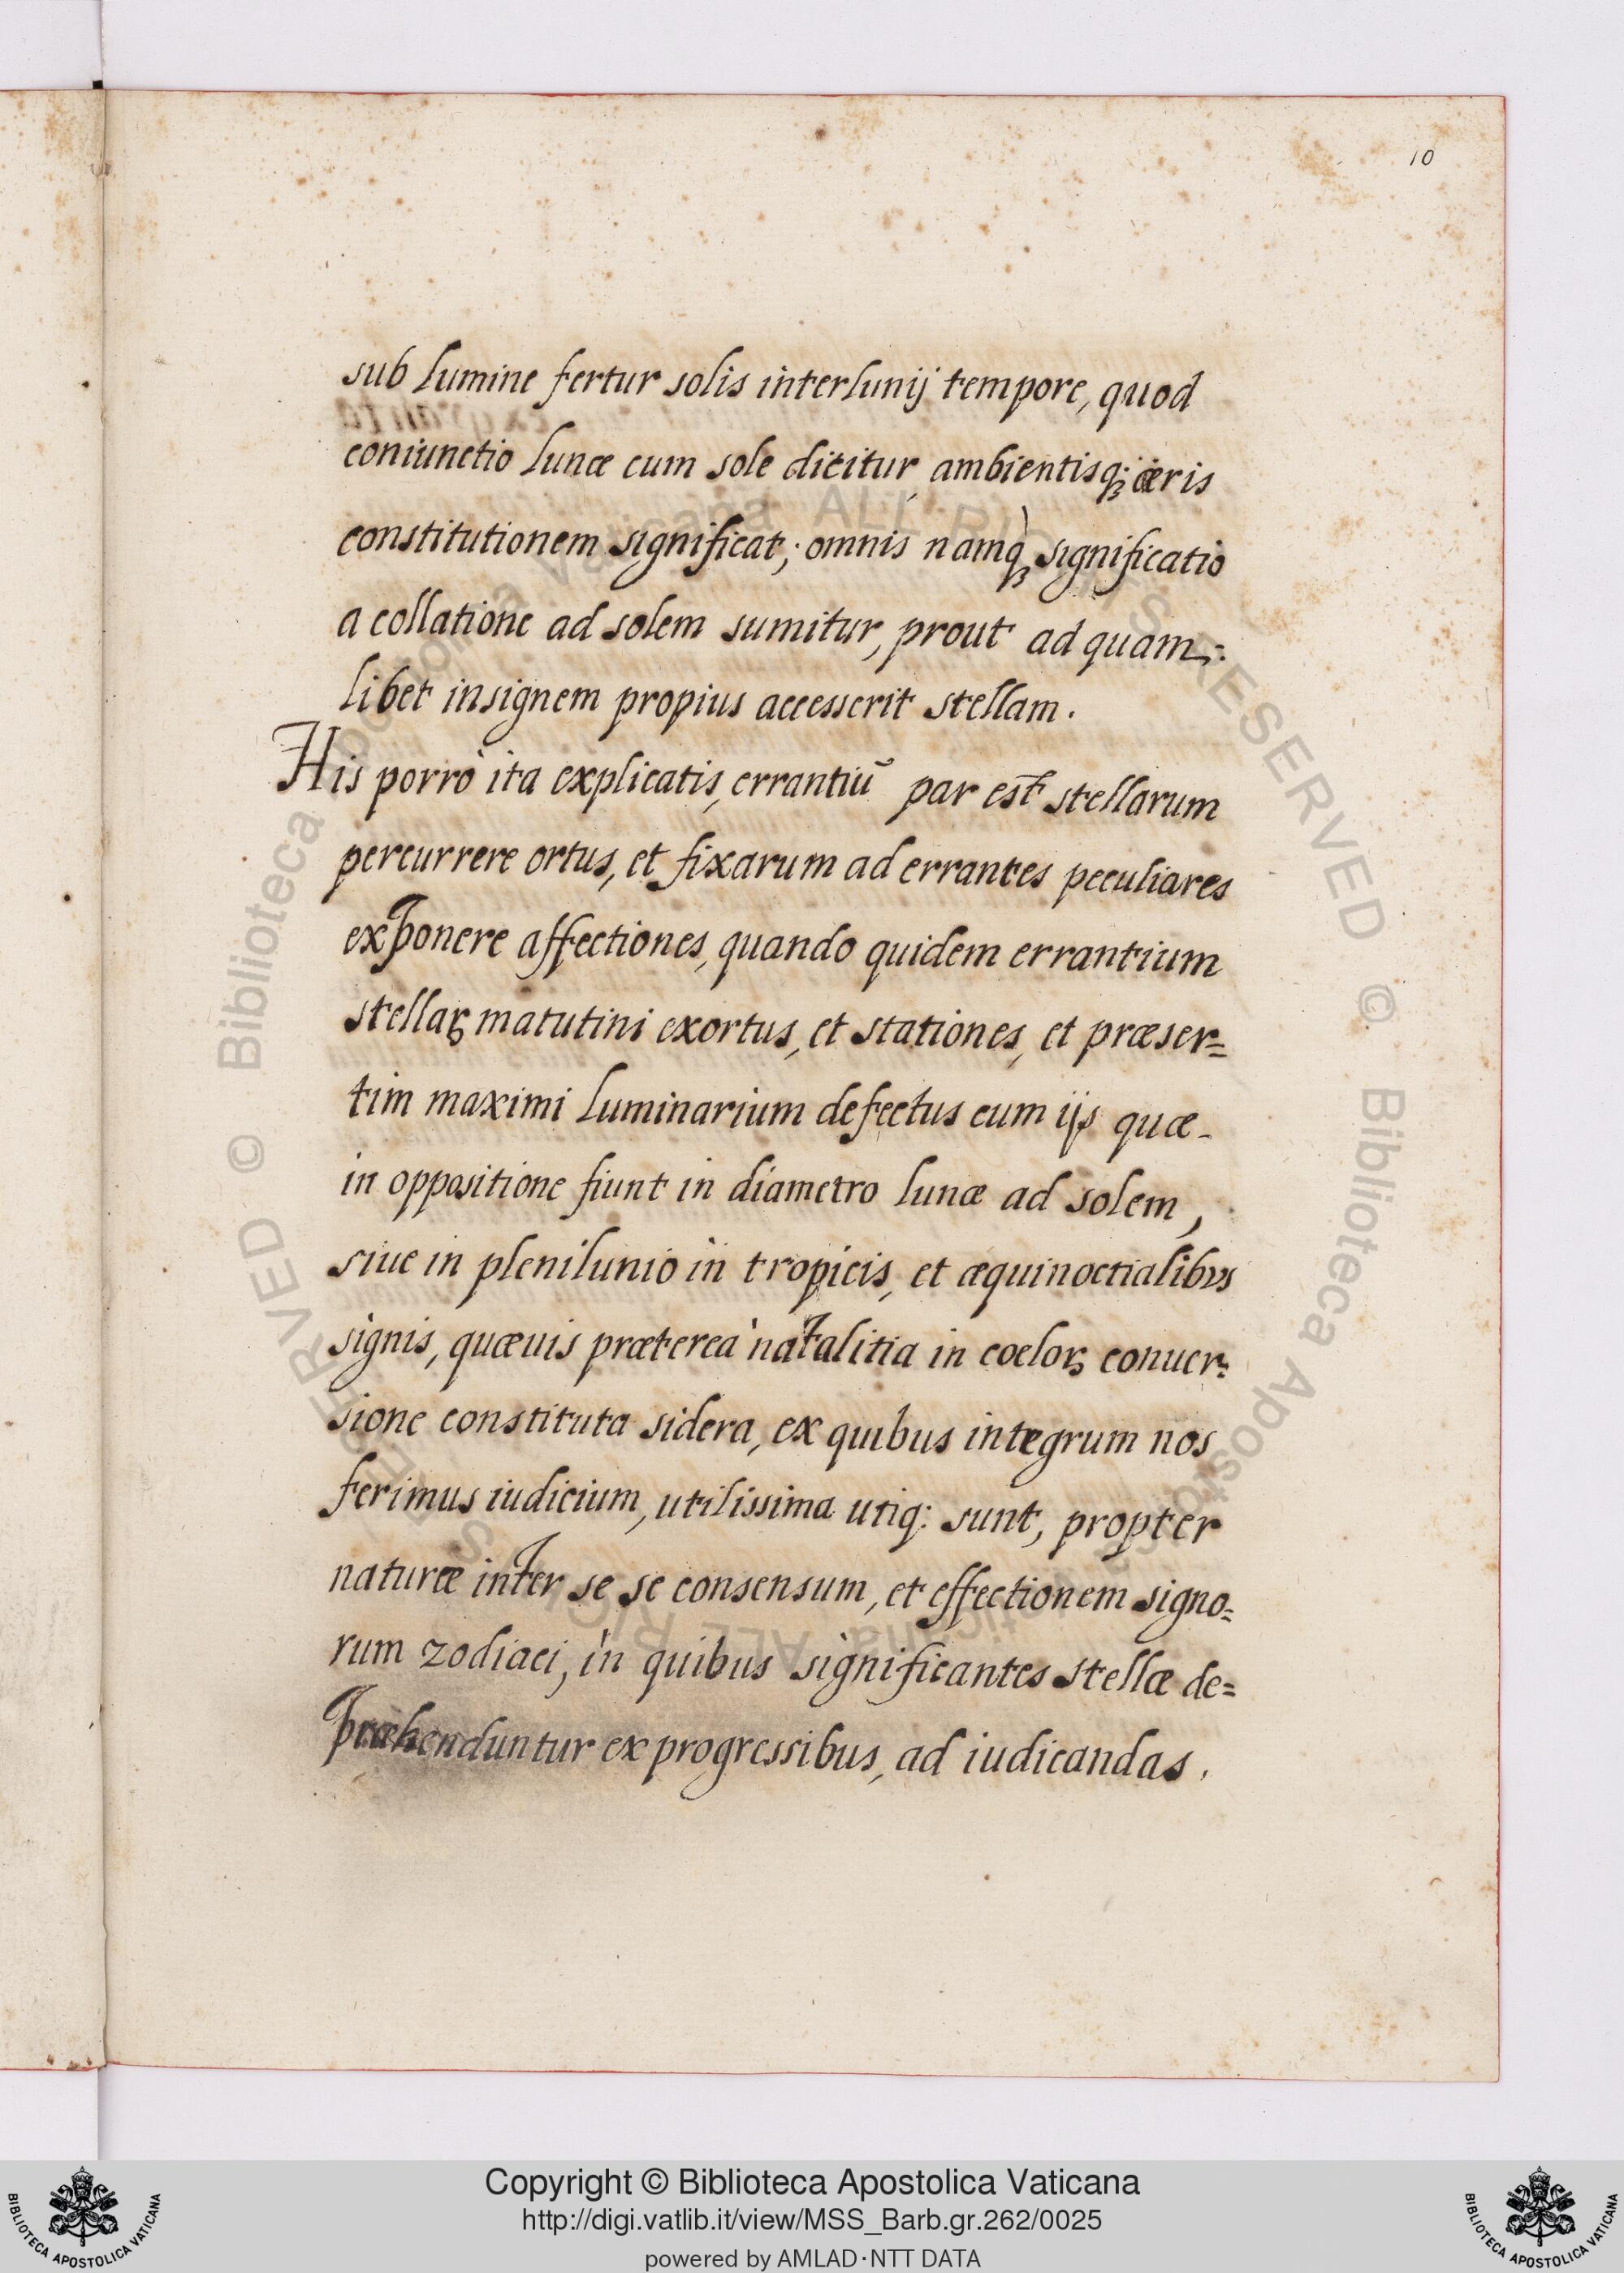 10
sub lumine fertur solis interlunij tempore, quod
coniunctio lunæ cum sole dicitur, ambientisqꝫ aëris
constitutionem significat; omnis namqꝫ significatio
a collatione ad solem sumitur, prout ad quam-
libet insignem propius accesserit stellam.
His porrò ita explicatis, errantiũ par est stellarum
percurrere ortus, et fixarum ad errantes peculiares
exponere affectiones, quando quidem errantium
stellaꝝ matutini exortus, et stationes, et præser=
tim maximi luminarium defectus cum ijs quæ
in oppositione fiunt in diametro lunæ ad solem,
siue in plenilunio in tropicis, et æquinoctialibus
signis, quæuis præterea natalitia in coeloꝝ conuer=
sione constituta sidera, ex quibus integrum nos
ferimus iudicium, utilissima utiq; sunt, propter
naturæ inter se se consensum, et effectionem signo=
rum zodiaci, in quibus significantes stellæ de=
præhenduntur ex progressibus, ad iudicandas.
© Biblioteca Apostolica Vaticana ALL RIGHTS RESERVED
© Biblioteca Apostolica Vaticana ALL RIGHTS RESERVED
Copyright © Biblioteca Apostolica Vaticana
http://digi.vatlib.it/view/MSS_Barb.gr.262/0025
powered by AMLAD·NTT DATA
BIBLIOTECA APOSTOLICA VATICANA
BIBLIOTECA APOSTOLICA VATICANA